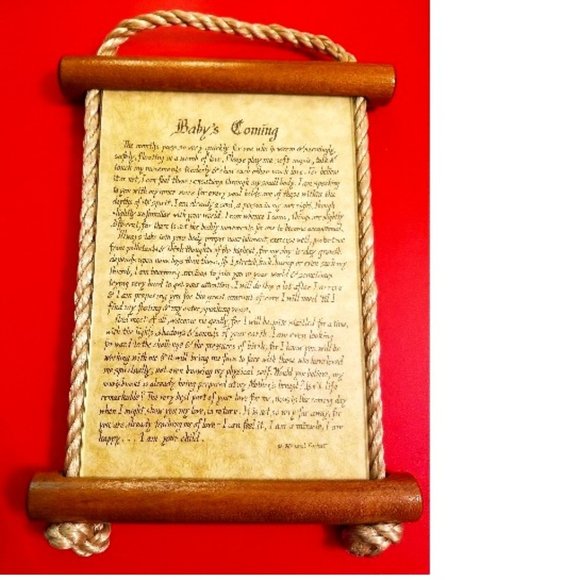 Baby's Coming
The months pass so very quickly for me who is warm & seemingly,
softly, floating in a womb of love. Please play me soft music, talk &
touch my movements tenderly & show each other much love. For believe
it or not, I can feel these sensations through my small body. I am speaking
to you with my inner voice for every soul holds one of these within the
depths of its' spirit. I am already a soul, a person in my own right, though
slightly unfamiliar with your world. I come whence I came, things are slightly
different, for there is not the bodily movements for one to become accustomed.
Always take into your body proper nourishment, exercise well, protect me
from pollutants & think thoughts of the highest, for my day to day growth
depends upon more days than two. If I stretch, kick, hiccup or even suck my
thumb, I am becoming anxious to join you in your world & sometimes
trying very hard to get your attention. I will do this a lot after I arrive
& I am preparing you for the great amount of care I will need 'til I
find my footing & my outer, speaking voice.
And most of all, welcome me gently, for I will be quite startled for a time,
with the lights, shadows & sounds of your earth. I am even looking
forward to the challenge & the pressures of birth, for I know you will be
working with me & it will bring me face to face with those who have loved
me spiritually, not even knowing my physical self. Would you believe, my
nourishment is already being prepared at my Mother's breast? Isn't life
remarkable? The very best part of your love for me, means in the coming day
when I might show you my love, in return. It is not so very far away, for
you are already teaching me of love - I can feel it, I am a miracle, I am
happy . . . I am your child.